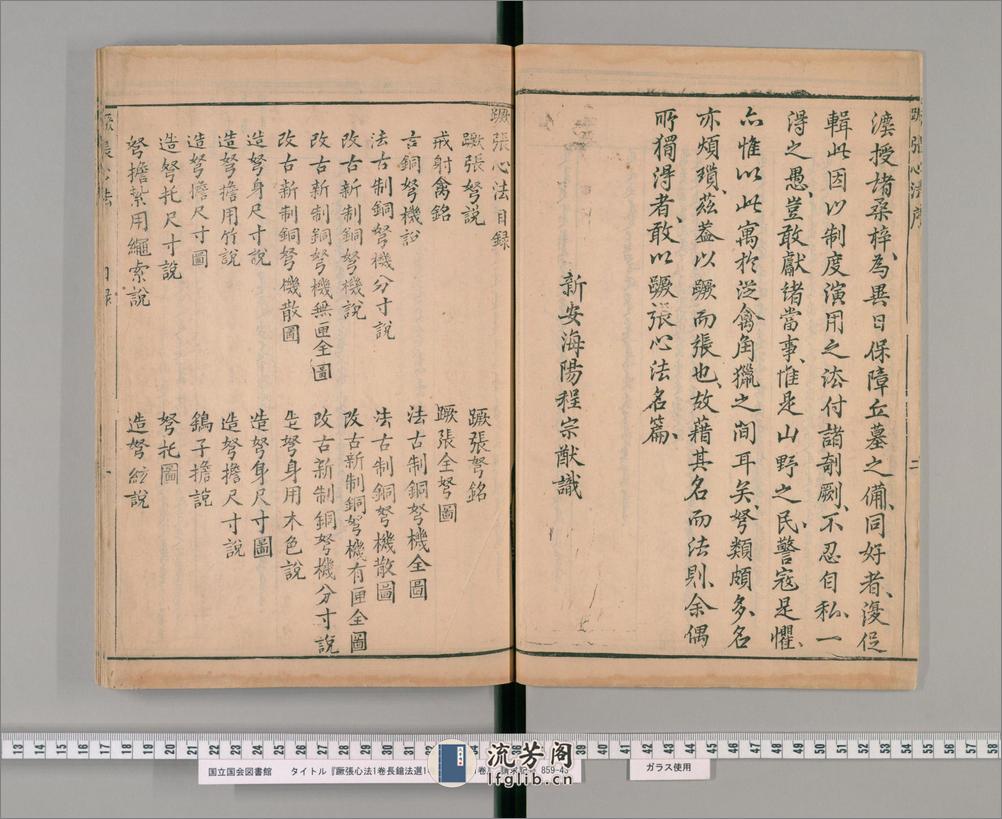 濹授堵桑梓為異日保障丘墓之備同好者復促
輯此因以制度演用之法付諸剞劂不忍自私一
得之愚豈敢獻諸當事惟是山野之民警寇是懼
亦惟以此寓於從禽角獵之間耳矣弩類頗多名
亦煩瑣茲蓋以蹶而張也故藉其名而法則余偶
所獨得者敢以蹶張心法名篇
新安海陽程宗猷識
蹶張心法目錄
蹶張弩說
蹶張弩銘
戒射禽銘
蹶張全弩圖
古銅弩機説
法古制銅弩機全圖
法古制銅弩機分寸說
法古制銅弩機散圖
改古新制銅弩機說
改古新制銅弩機有匣全圖
改古新制銅弩機無匣全圖
改古新制銅弩機分寸說
改古新制銅弩機散圖
造弩身用木色說
造弩身尺寸說
造弩身尺寸圖
造弩擔用竹說
造弩擔尺寸說
造弩擔尺寸圖
鷂子擔說
造弩托尺寸說
弩托圖
弩擔紮用繩索說
造弩絃說
国立国会図書館 タイトル『蹶張心法1巻長鎗法選1 859-43
ガラス使用
流芳阁
lfglib.cn